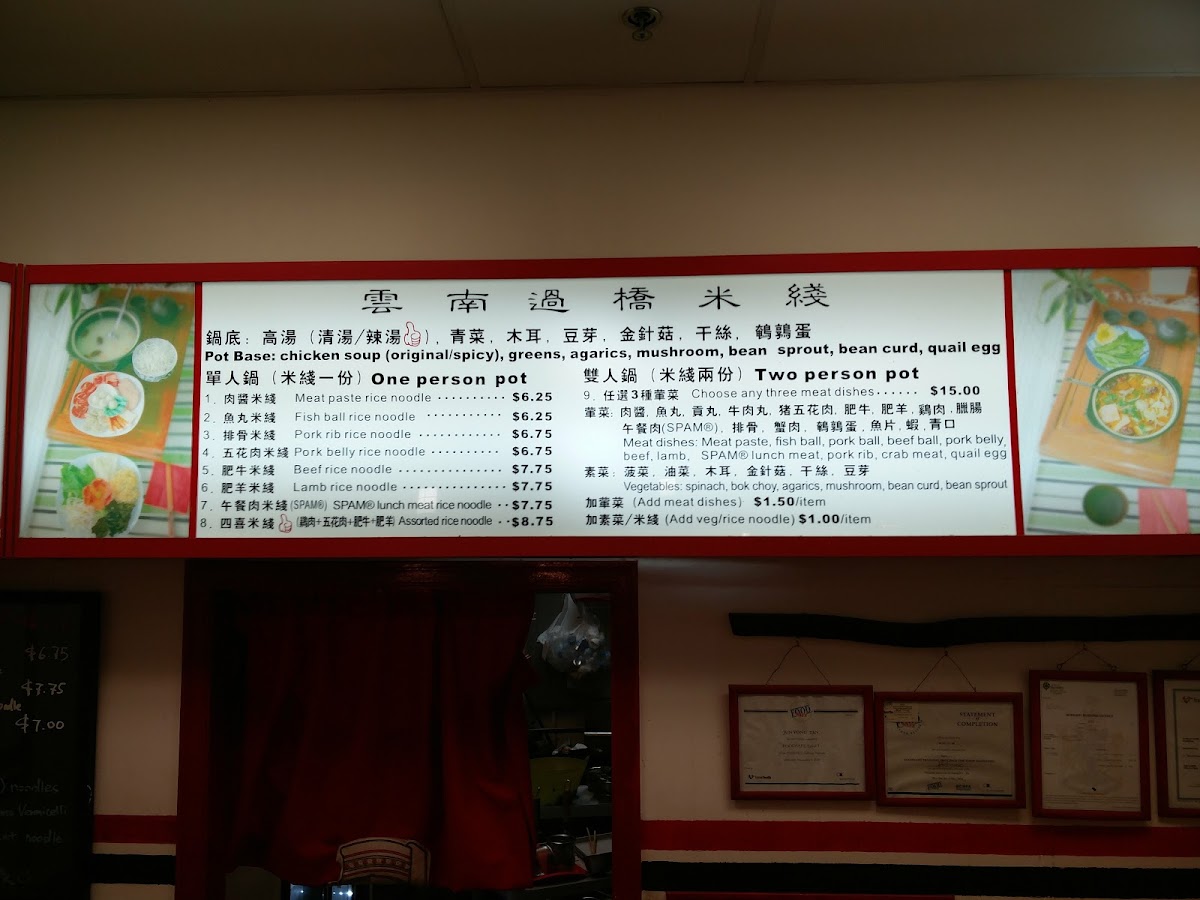 雲南過橋米綫
鍋底：高湯（清湯/辣湯），青菜，木耳，豆芽，金針菇，干絲，鵪鶉蛋
Pot Base: chicken soup (original/spicy), greens, agarics, mushroom, bean sprout, bean curd, quail egg
單人鍋（米綫一份）One person pot
1. 肉醬米綫 Meat paste rice noodle ·········· $6.25
2. 魚丸米綫 Fish ball rice noodle ·········· $6.25
3. 排骨米綫 Pork rib rice noodle ············ $6.75
4. 五花肉米綫 Pork belly rice noodle ·········· $6.75
5. 肥牛米綫 Beef rice noodle ··············· $7.75
6. 肥羊米綫 Lamb rice noodle ··············· $7.75
7. 午餐肉米綫(SPAM®) SPAM® lunch meat rice noodle ·· $7.75
8. 四喜米綫(鷄肉+五花肉+肥牛+肥羊) Assorted rice noodle ·· $8.75
雙人鍋（米綫兩份）Two person pot
9. 任選3種葷菜 Choose any three meat dishes······ $15.00
葷菜：肉醬，魚丸，貢丸，牛肉丸，猪五花肉，肥牛，肥羊，鷄肉，臘腸
午餐肉(SPAM®)，排骨，蟹肉，鵪鶉蛋，魚片，蝦，青口
Meat dishes: Meat paste, fish ball, pork ball, beef ball, pork belly,
beef, lamb, SPAM® lunch meat, pork rib, crab meat, quail egg
素菜：菠菜，油菜，木耳，金針菇，干絲，豆芽
Vegetables: spinach, bok choy, agarics, mushroom, bean curd, bean sprout
加葷菜 (Add meat dishes) $1.50/item
加素菜/米綫 (Add veg/rice noodle) $1.00/item
$6.75
$7.75
$7.00
noodles
noodle
STATEMENT
COMPLETION